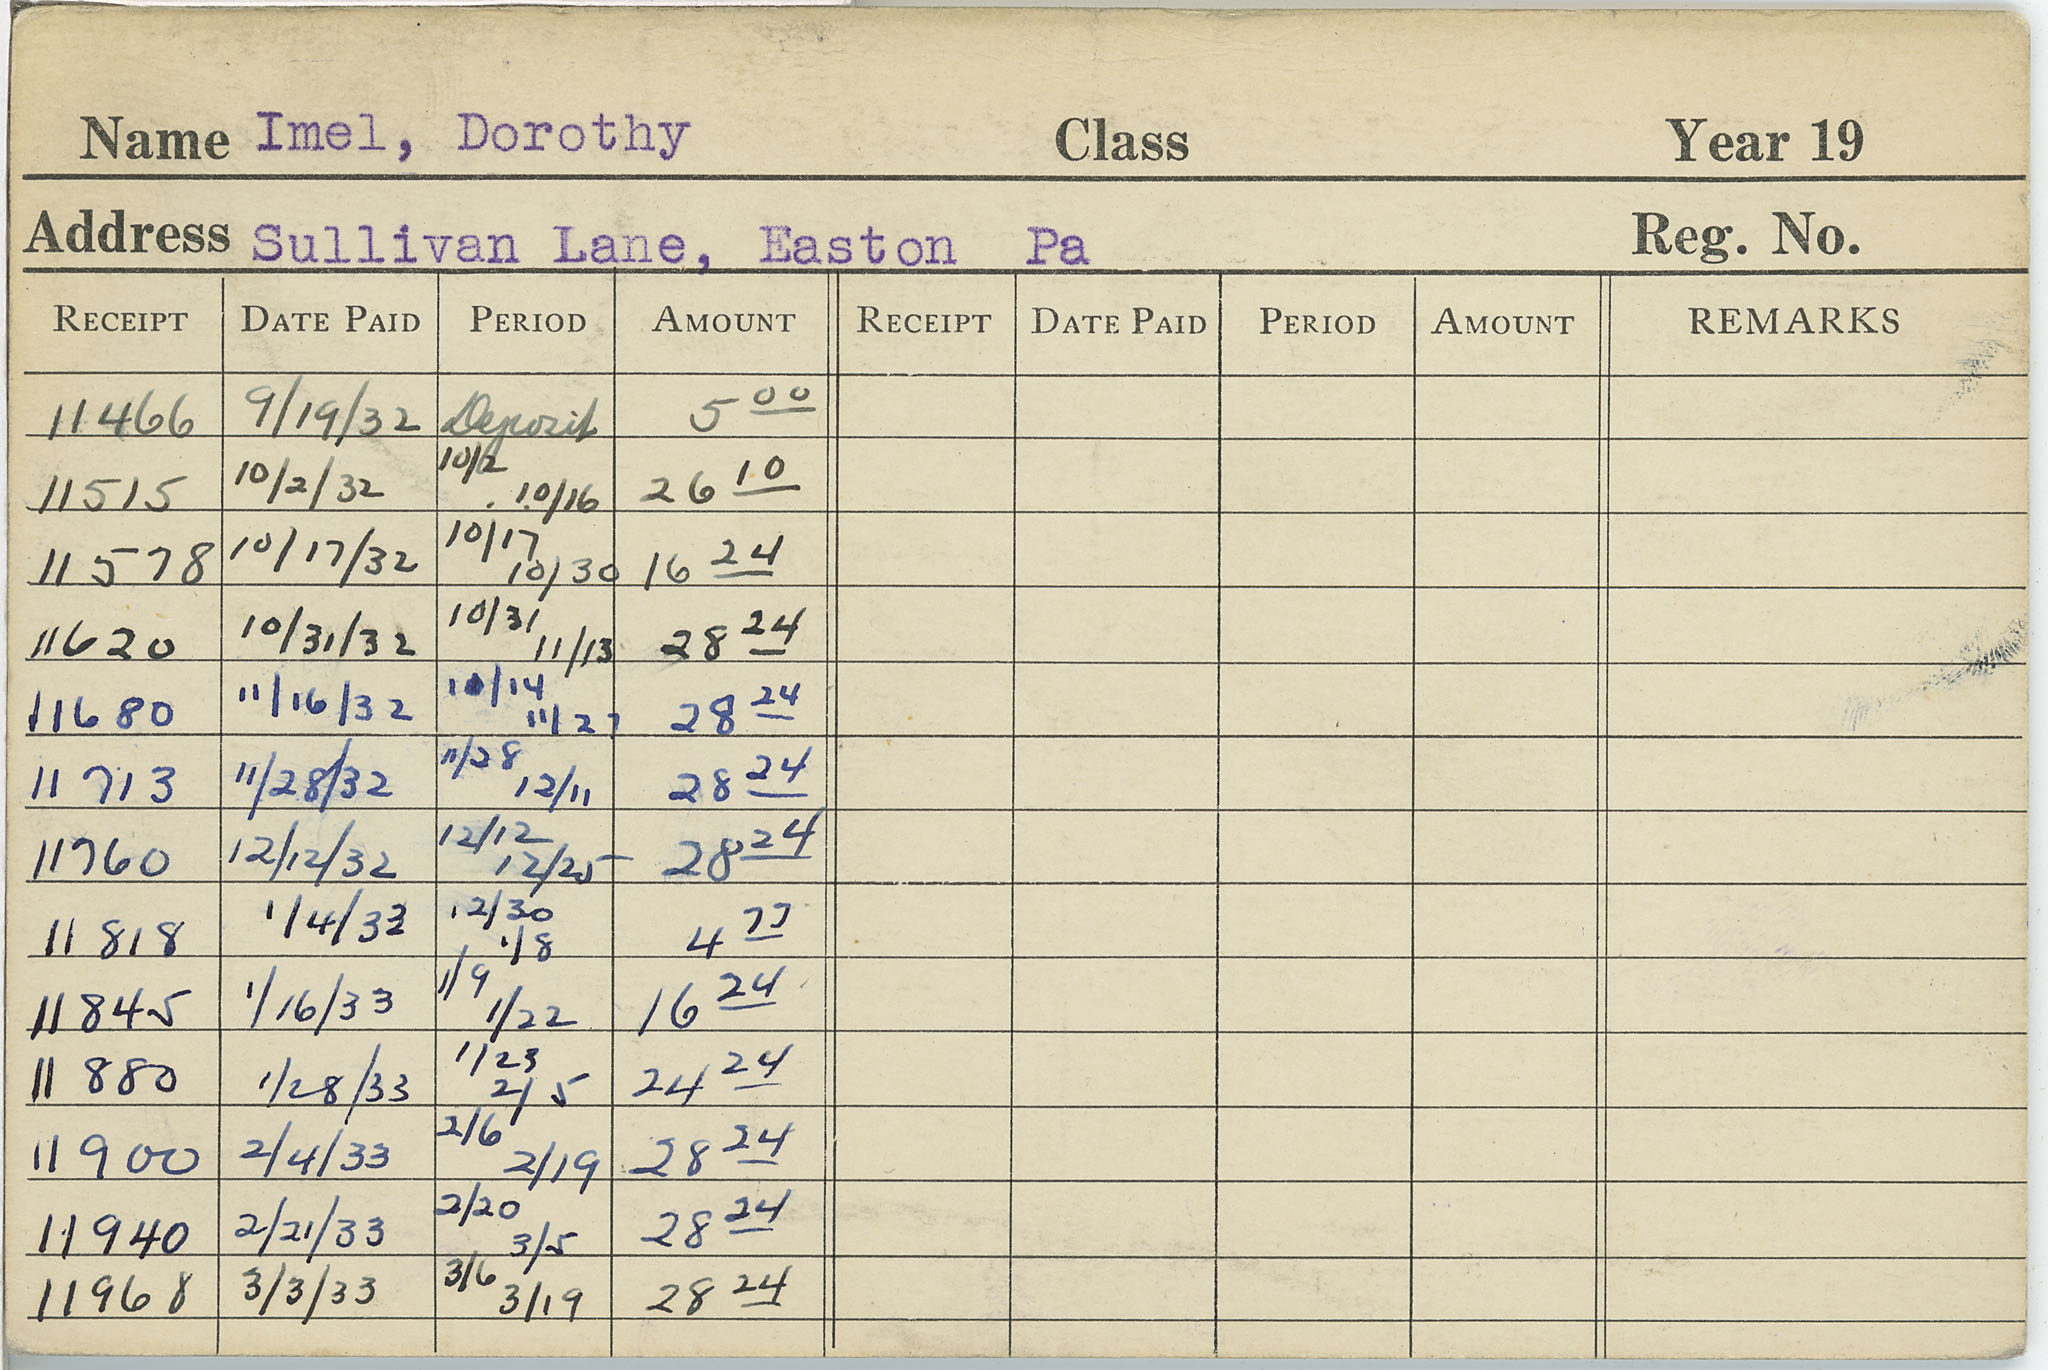 Name Imel, Dorothy Class Year 19
Address Sullivan Lane, Easton Pa Reg. No.
RECEIPT DATE PAID PERIOD AMOUNT RECEIPT DATE PAID PERIOD AMOUNT REMARKS
11466 9/19/32 Deposit 5 00
11515 10/2/32 10/2 10/16 26 10
11578 10/17/32 10/17 10/30 16 24
11620 10/31/32 10/31 11/13 28 24
11680 11/16/32 11/14 11/27 28 24
11713 11/28/32 11/28 12/11 28 24
11760 12/12/32 12/12 12/25 28 24
11818 1/4/33 12/30 1/8 4 77
11845 1/16/33 1/9 1/22 16 24
11880 1/28/33 1/23 2/5 24 24
11900 2/4/33 2/6 2/19 28 24
11940 2/21/33 2/20 3/5 28 24
11968 3/3/33 3/6 3/19 28 24